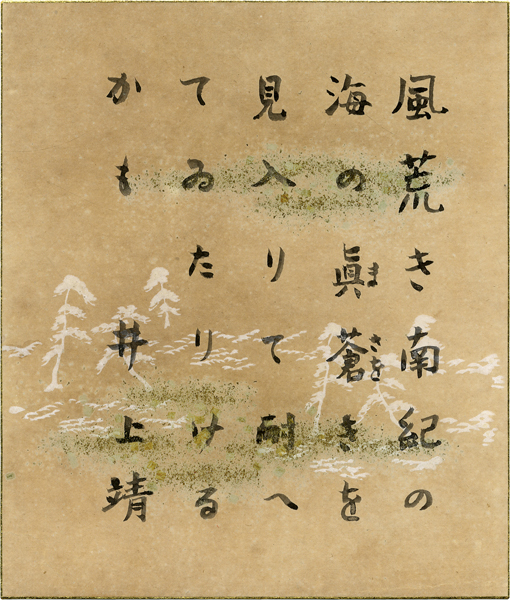 風荒き南紀の
海の眞蒼きを
まさを
見入りて耐へ
てゐたりける
かも
井上靖